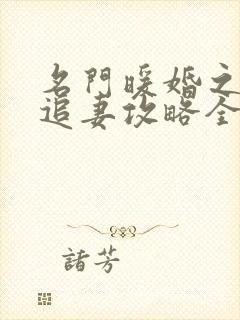 名門暖婚之
追妻攻略全
諸芳